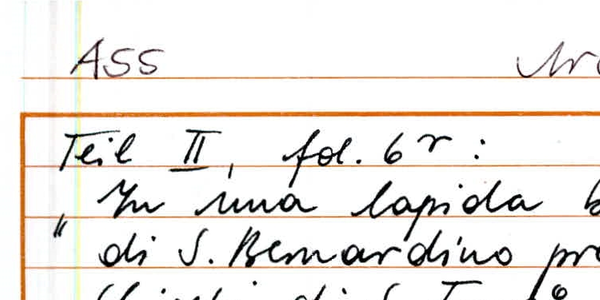 ASS
Teil II, fol. 6r:
"In una lapida
di S. Bernardino
di S.